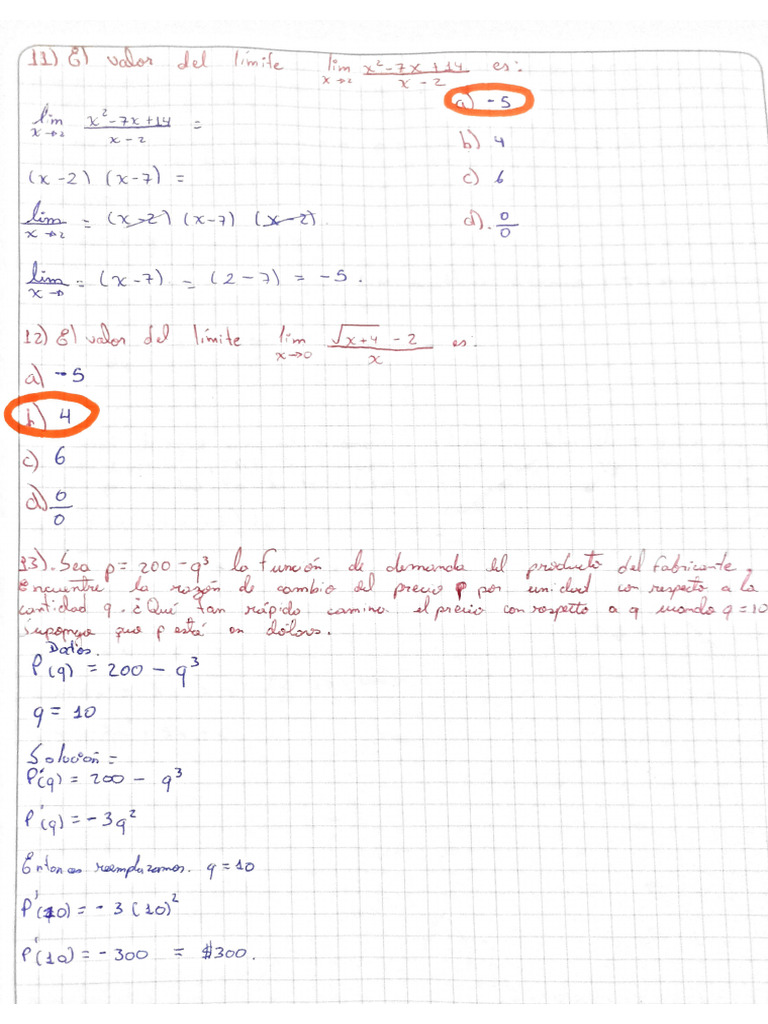 11) El valor del límite lim x→2 x²-7x+14 / x-2 es:
a) -5
lim x→2 x²-7x+14 / x-2 =
b) 4
(x-2) (x-7) =
c) 6
lim x→2 = (x-2) (x-7) (x-2)
d). 0/0
lim x→ = (x-7) = (2-7) = -5.
12) El valor del límite lim x→0 √x+4 - 2 / x es:
a) -5
b) 4
c) 6
d) 0/0
13). Sea p = 200 - q³ la función de demanda el producto del fabricante,
encuentre la razón de cambio del precio p por unidad con respecto a la
cantidad q. ¿Qué tan rápido camino el precio con respecto a q cuando q = 10
suponga que p está en dólars.
Datos.
P(q) = 200 - q³
q = 10
Solución =
P'(q) = 200 - q³
P'(q) = -3q²
Entonces reemplazamos. q = 10
P'(10) = -3 (10)²
P'(10) = -300 = $300.